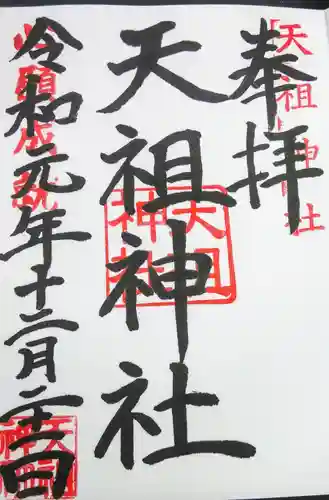 奉拝
天祖神社
天祖神社
天祖神社
令和元年十二月二十四日
心願成就
天祖神社